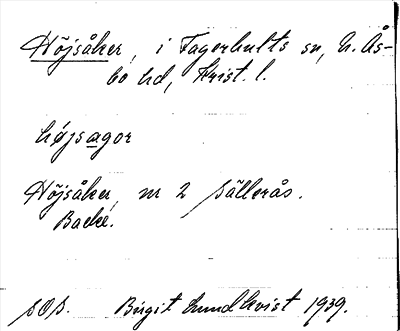 Höjsåker, i Fagerhults sn, N. Ås-
bo hd, Krist. l.
höjsagor
Höjsåker, nr 2 Sällerås.
Backe.
SOS. Birgit Lundkvist 1939.